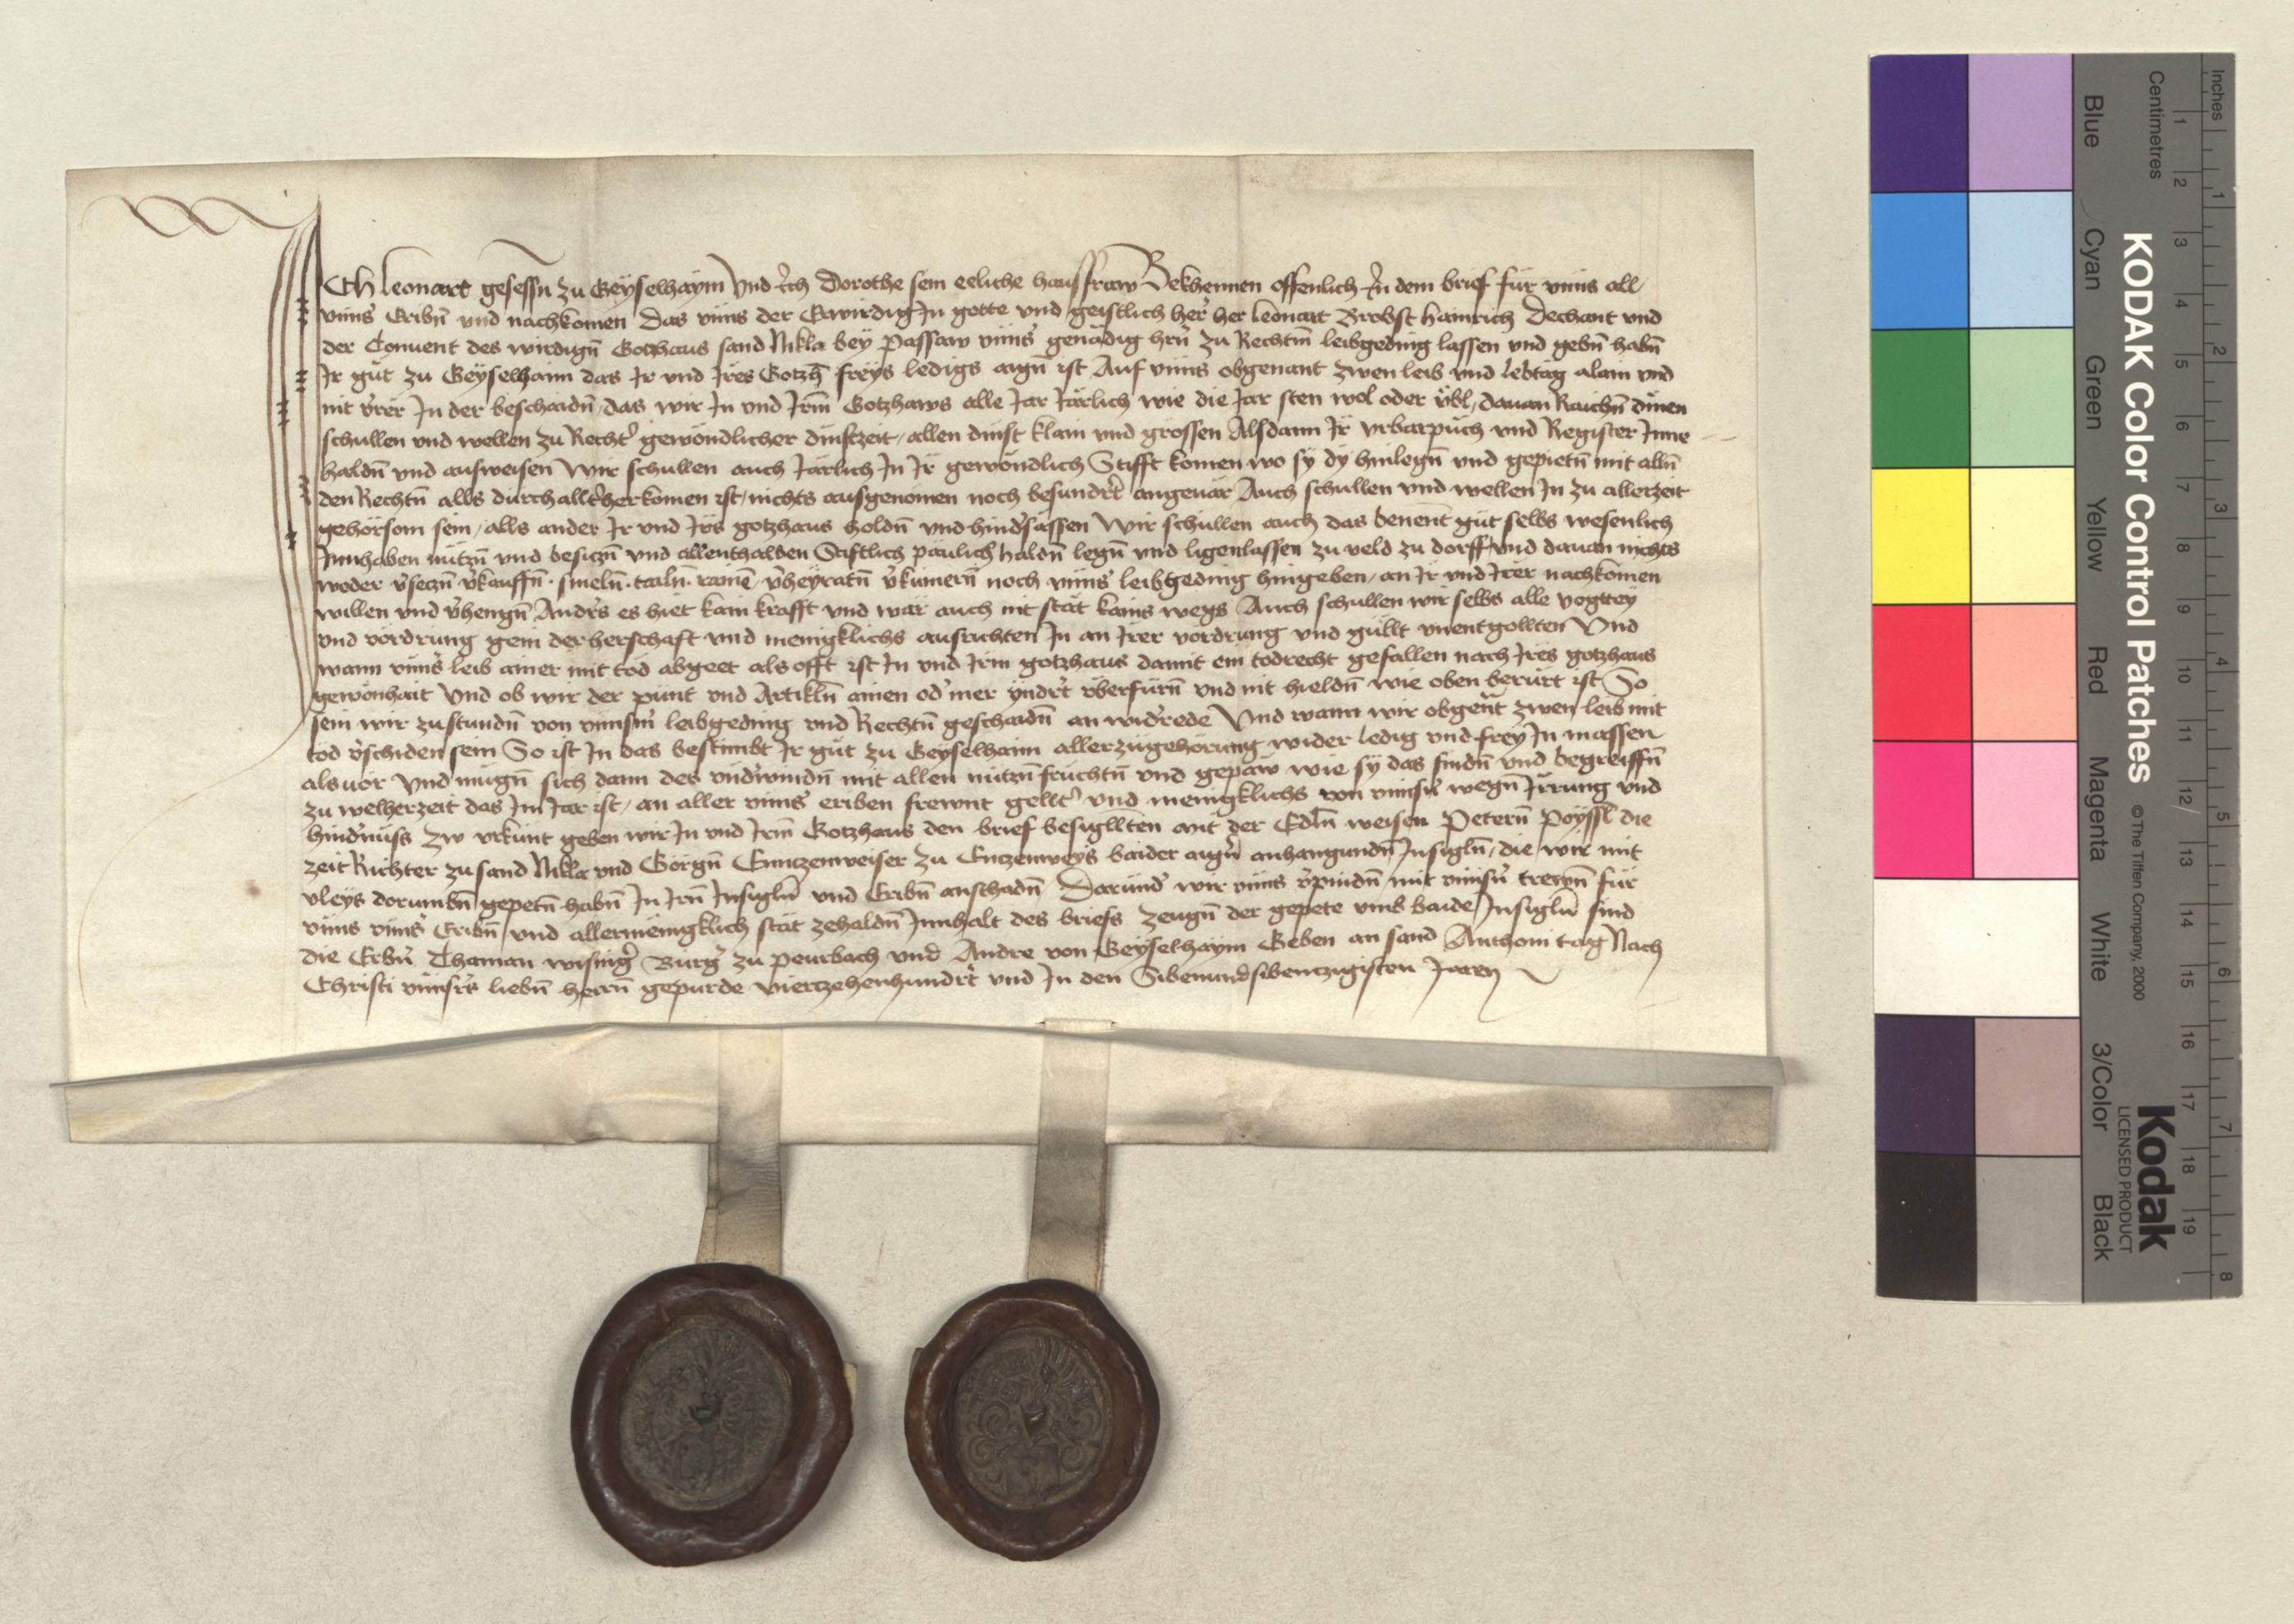 Ich leonart gesessn zu Geyselhaym Vnd ich Dorothe sein eeliche hausfraw Bekhennen offenlich in dem brief für vnns all
vnns' Eribn̄ vnd nachkomen Das vnns der Erwirdig In gotte vnd geistlich her' her leonart Brobst hainrich Dechant vnd
der Conuent des wirdign̄ Gotzhaus sand Nikla bey Passaw vnns' genädig hrn̄ zu Rechtm̄ leibgeding lassen vnd gebn̄ habn̄
Ir gut zu Geyselhaim das Ir vnd Ires Gotzh̄ freys ledigs aign̄ ist Auf vnns obgenant zwen leib vnd lebtag alain vnd
nit v'rer In der beschaidn̄, das wir In vnd Irm̄ Gotzhaws alle Jar Järlich wie die Jar sten wol oder vbl, dauan Raichn̄ dinen
schullen vnd wellen zu Recht' gewöndlicher dinstzeit, allen dinst klain vnd grossen Alsdann Ir vrbarpüch vnd Register Inne
haldn̄ vnd ausweisen Wir schullen auch Järlich In Ir gewöndlich Stifft komen wo sy dy hinlegn̄ vnd gepietn̄ mit alln̄
den Rechtn̄ alls durch allt'herkomen ist, nichts ausgenomen noch besundr't angeuär Auch schullen vnd wellen In zu allerzeit
gehorsom sein, alls ander Ir vnd Irs gotzhaus holdn̄ vnd hind'sässen Wir schullen auch das benent gut selbs wesenlich
Innhaben nützn̄ vnd besiczn̄ vnd allenthalben Stiftlich päulich haldn̄ legn̄ vnd ligenlassen zu veld zu dorff vnd dauan nichts
weder v'seczn̄ v'kauffn̄ · smeln̄ · tailn̄ · rainē, v'heyratn̄ v'kümern̄ noch vnns' leibgeding hingeben, an Ir vnd Irer nachkomen
willen vnd v'hengn̄ Andr's es hiet kain krafft vnd wär auch nit stät kains wegs Auch schullen wir selbs alle vogttey
vnd vordrung gein der herschaft vnd menigklichs ausrichten In an Irer vordrung vnd güllt vnentgollten Vnd
wann vnns' leib ainer mit tod abgeet als offt ist In vnd Irm gotzhaus damit ein todrecht gefallen nach Ires gotzhaus
gewonhait Vnd ob wir der pünt vnd Artikln̄ ainen od' mer yndr't vberfürn̄ vnd nit hieldn̄ wie oben berürt ist So
sein wir zustundn̄ von vnnsm̄ leibgeding vnd Rechtn̄ geschaidn̄ an wid'rede Vnd wann wir obgen̄t zwen leib mit
tod v'schiden sein So ist In das bestimbt Ir gut zu Geyselhaim allerzugehörung wider ledig vnd frey In massen
als vor Vnd mugn̄ sich dann des vnd'windn̄ mit allen nützn̄ früchtn̄ vnd gepaw wie sy das findn̄ vnd begreiffn̄
zu welherzeit das Im Jar ist, an aller vnns' eriben frewnt gellt' vnd menigklichs von vnnsn̄ wegn̄ Irrung vnd
hind'nüss Zw vrkunt geben wir In vnd Irm̄ Gotzhaus den brief besigllten mit der Edln̄ weisen Petern̄ Poyssl die
zeit Richter zu sand Nikla vnd Görgn̄ Enntzenweiser zu Entzenweys baider aign̄ anhangundn̄ Insigln̄, die wir mit
vleys dorumbn̄ gepetn̄ habn̄ In Irn̄ Insigln̄ vnd Eribn̄ anschadn̄ Darund' wir vnns v'pindn̄ mit vnnsn̄ trewn̄ für
vnns vnns' Eribn̄ vnd allermenigklich stät zehaldn̄ Innhalt des briefs Zeugn̄ der gepete vmb baide Insiglū sind
die Erbn̄ Thaman wising' Burg' zu peurbach vnd Andre von Geyselhaym Geben an sand Anthoni tag Nach
Christi vnnsr's liebn̄ herrn̄ gepurde Viertzehenhundr't vnd In den Sibenundsibentzigisten Jaren
KODAK Color Control Patches
© The Tiffen Company, 2000
Kodak
LICENSED PRODUCT
Inches
1 2 3 4 5 6 7 8
Centimetres
1 2 3 4 5 6 7 8 9 10 11 12 13 14 15 16 17 18 19
Blue Cyan Green Yellow Red Magenta White 3/Color Black